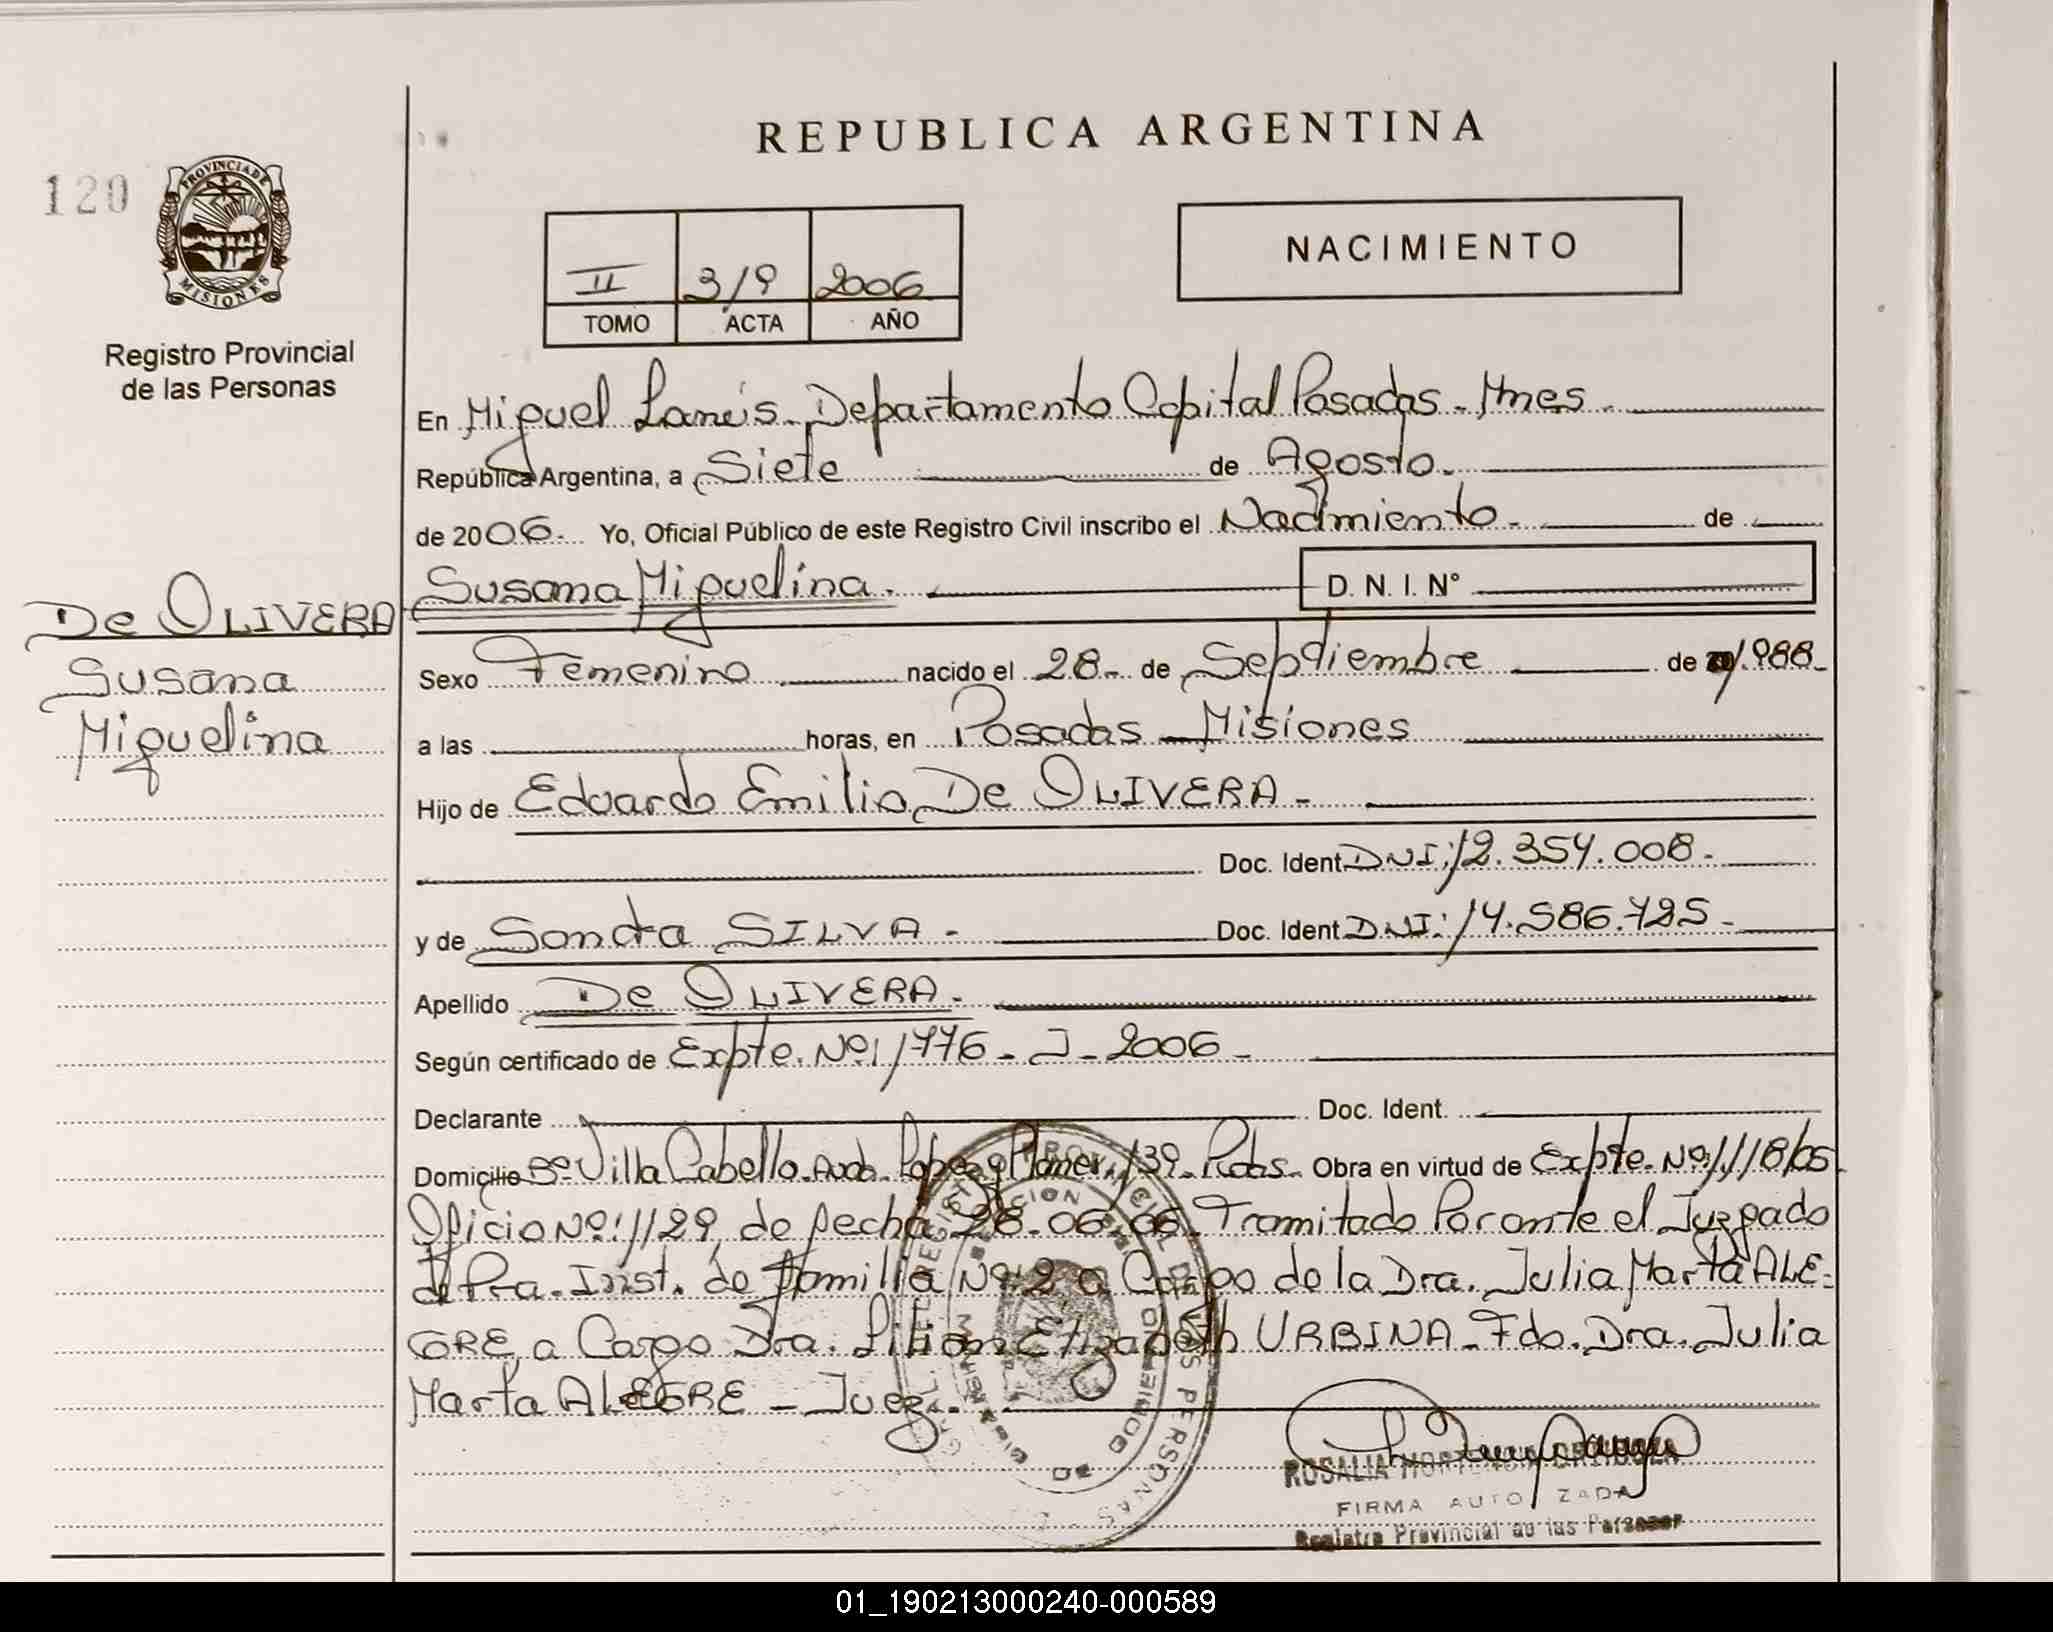 REPUBLICA ARGENTINA
120
PROVINCIA DE
MISIONES
Registro Provincial
de las Personas
II 319 2006
TOMO ACTA AÑO
NACIMIENTO
En Miguel Lanús - Departamento Capital Posadas - Mnes -
República Argentina, a Siete de Agosto.
de 2006. Yo, Oficial Público de este Registro Civil inscribo el Nacimiento - de
De OLIVERA
Susana
Miguelina
Susana Miguelina. D. N. I. N°
Sexo Femenino nacido el 28 - de Septiembre de 1.988 -
a las horas, en Posadas - Misiones
Hijo de Eduardo Emilio De OLIVERA -
Doc. Ident DNI: 12.354.008 -
y de Sandra SILVA - Doc. Ident DNI: 14.586.725 -
Apellido De OLIVERA -
Según certificado de Expte. Nº: 1776 - J - 2006 -
Declarante Doc. Ident.
Domicilio Bº Villa Cabello. Avda. Lopez y Planes, 139 - Pdas - Obra en virtud de Expte. Nº 1118/05
Oficio Nº: 1129, de fecha 28.06.06. Tramitado Por ante el Juzgado
de Pra. Inst. de Familia Nº: 2 a Cargo de la Dra. Julia Marta ALE-
GRE, a Cargo Dra. Lilian Elizabeth URBINA - Fdo. Dra. Julia
Marta ALEGRE - Juez -
ROSALIA HORTENCIA
FIRMA AUTORIZADA
Registro Provincial de las Personas
01_190213000240-000589